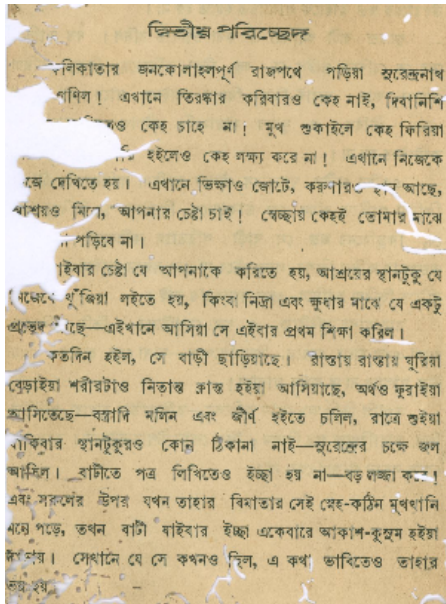 দ্বিতীয় পরিচ্ছেদ
জনকোলাহলপূর্ণ রাজপথে পড়িয়া সুরেন্দ্রনাথ
এখানে তিরস্কার করিবারও কেহ নাই, দিবানিশি
কেহ চাহে না! মুখ শুকাইলে কেহ ফিরিয়া
হইলেও কেহ লক্ষ্য করে না! এখানে নিজেকে
দেখিতে হয়। এখানে ভিক্ষাও জোটে, করুণারও স্থান আছে,
আশ্রয়ও মিলে, আপনার চেষ্টা চাই! স্বেচ্ছায় কেহই তোমার মাঝে
পড়িবে না।
চেষ্টা যে আপনাকে করিতে হয়, আশ্রয়ের স্থানটুকু যে
খুঁজিয়া লইতে হয়, কিংবা নিদ্রা এবং ক্ষুধার মাঝে যে একটু
প্রভেদ আছে—এইখানে আসিয়া সে এইবার প্রথম শিক্ষা করিল।
কতদিন হইল, সে বাড়ী ছাড়িয়াছে। রাস্তায় রাস্তায় ঘুরিয়া
বেড়াইয়া শরীরটাও নিতান্ত ক্লান্ত হইয়া আসিয়াছে, অর্থও ফুরাইয়া
আসিতেছে—বস্ত্রাদি মলিন এবং জীর্ণ হইতে চলিল, রাত্রে শুইয়া
থাকিবার স্থানটুকুরও কোন ঠিকানা নাই—সুরেন্দ্রের চক্ষে জল
আসিল। বাটীতে পত্র লিখিতেও ইচ্ছা হয় না—বড় লজ্জা করে!
এবং সকলের উপর যখন তাহার বিমাতার সেই স্নেহ-কঠিন মুখখানি
মনে পড়ে, তখন বাটী যাইবার ইচ্ছা একেবারে আকাশ-কুসুম হইয়া
দাঁড়ায়। সেখানে যে সে কখনও ছিল, এ কথা ভাবিতেও তাহার
ভয় হয়